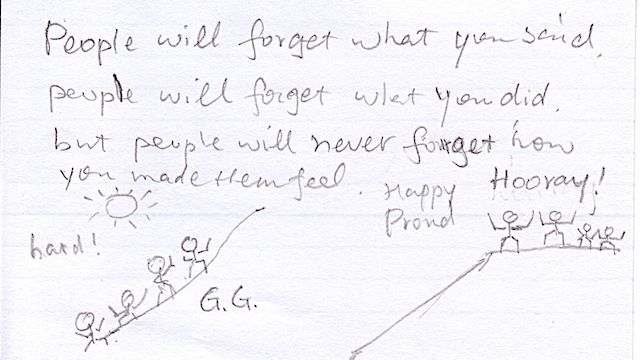 People will forget what you said,
people will forget what you did.
but people will never forget how
you made them feel.
Happy Hooray!
Proud
hard!
G.G.